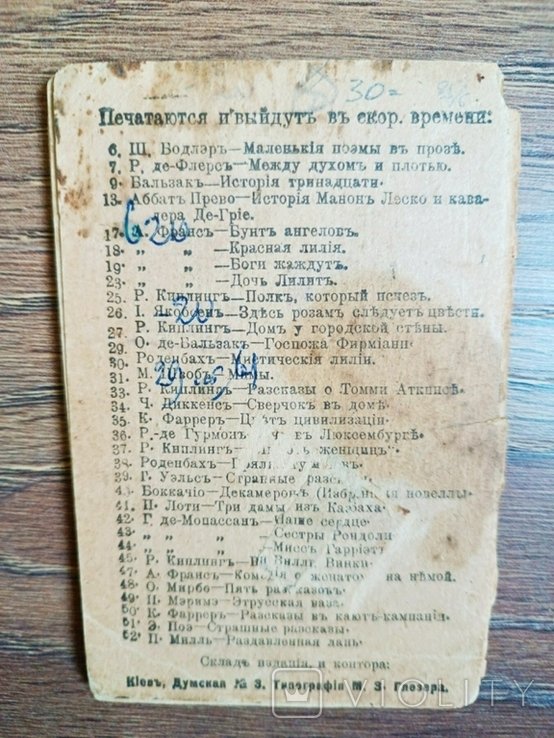 30=
Печатаются и выйдутъ въ скор. времени:
6. Ш. Бодлэръ—Маленькія поэмы въ прозѣ.
7. Р. де-Флерсъ—Между духомъ и плотью.
9. Бальзакъ—Исторія тринадцати.
13. Аббатъ Прево—Исторія Манонъ Леско и кава-
лера Де-Гріе.
17. А. Франсъ—Бунтъ ангеловъ.
18. „ „ —Красная лилія.
19. „ „ —Боги жаждутъ.
23. „ „ —Дочь Лилитъ.
25. Р. Киплингъ—Полкъ, который исчезъ.
26. І. Якобсенъ—Здѣсь розамъ слѣдуетъ цвѣсти.
27. Р. Киплингъ—Домъ у городской стѣны.
29. О. де-Бальзакъ—Госпожа Фирміани.
30. Роденбахъ—Мистическія лиліи.
31. М. Швобъ—Мимы.
33. Р. Киплингъ—Разсказы о Томми Аткинсѣ.
34. Ч. Диккенсъ—Сверчокъ въ домѣ.
35. К. Фарреръ—Цвѣтъ цивилизаціи.
36. Р. де-Гурмонъ— въ Люксембургѣ.
37. Р. Киплингъ— женщинъ.
38. Роденбахъ—
39. Г. Уэльсъ—Странные
40. Боккачіо—Декамеронъ (Избранная новеллы
41. П. Лоти—Три дамы изъ Казбаха.
42. Г. де-Мопассанъ—Наше сердце.
43. „ „ —Сестры Рондоли
44. „ „ —Миссъ Гарріэтъ
45. Р. Киплингъ— Вилли Винки.
47. А. Франсъ—Комедія о женатомъ на нѣмой.
48. О. Мирбо—Пять разсказовъ.
49. П. Мэримэ—Этрусская ваза.
50. К. Фарреръ—Разсказы въ каютъ-кампаніи.
51. Э. Поэ—Страшные разсказы.
52. П. Милль—Раздавленная лань.
Складъ изданія, и контора:
Кіевъ, Думская № 3. Типографія М. Э. Глезера.
VIOLITY